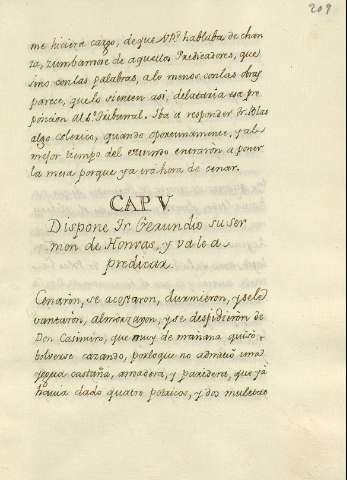 209
me hiciera cargo, de que V. P. hablaba de chan
za, zumbandose de aquellos Predicadores, que
sino con las palabras, alo menos con las obras
parece, que lo sienten asi, delataria esa pro
posicion al S.to Tribunal. Iba a responder Fr. Blas
algo colerico, quando oportunamente, y al
mejor tiempo del mundo entraron a poner
la mesa porque ya era hora de cenar.
CAP. V.
Dispone Fr. Gerundio su ser
mon de Honras, y va le a
predicar.
Cenaron, se acostaron, durmieron, y se le
vantaron, almorzaron, y se despidieron de
Don Casimiro, que muy de mañana quiso
bolverse cazando, por lo que no admitió una
yegua castaña, andadora, y paridera, que yá
havia dado quatro potricos, y dos muletos